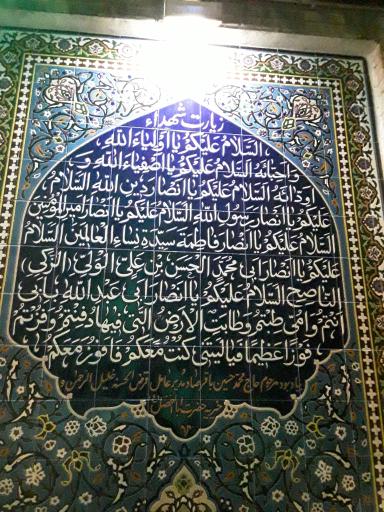 زیارت شهداء
السَّلامُ عَلَیْکُمْ یا اَوْلِیاءَ اللهِ
وَ اَحِبّائَهُ السَّلامُ عَلَیْکُمْ یا اَصْفِیاءَ اللهِ وَ
اَوِدّائَهُ السَّلامُ عَلَیْکُمْ یا اَنْصارَ دینِ اللهِ السَّلامُ
عَلَیْکُمْ یا اَنْصارَ رَسُولِ اللهِ السَّلامُ عَلَیْکُمْ یا اَنْصارَ اَمیرِ الْمُؤْمِنینَ
السَّلامُ عَلَیْکُمْ یا اَنْصارَ فاطِمَةَ سَیِّدَةِ نِساءِ الْعالَمینَ السَّلامُ
عَلَیْکُمْ یا اَنْصارَ اَبی مُحَمَّدٍ الْحَسَنِ بْنِ عَلِیٍّ الْوَلِیِّ (الزَّکِیِّ)
النّاصِحِ السَّلامُ عَلَیْکُمْ یا اَنْصارَ اَبی عَبْدِ اللهِ بِاَبی
اَنْتُمْ وَ اُمّی طِبْتُمْ وَ طابَتِ الْاَرْضُ الَّتی فیها دُفِنْتُمْ وَ فُزْتُمْ
فَوْزاً عَظیماً فَیا لَیْتَنی کُنْتُ مَعَکُمْ فَاَفُوزَ مَعَکُمْ
یادبود مرحوم حاج محمد حسین باقرصاد مدیر عامل قرض الحسنه خلیل الرحمن و